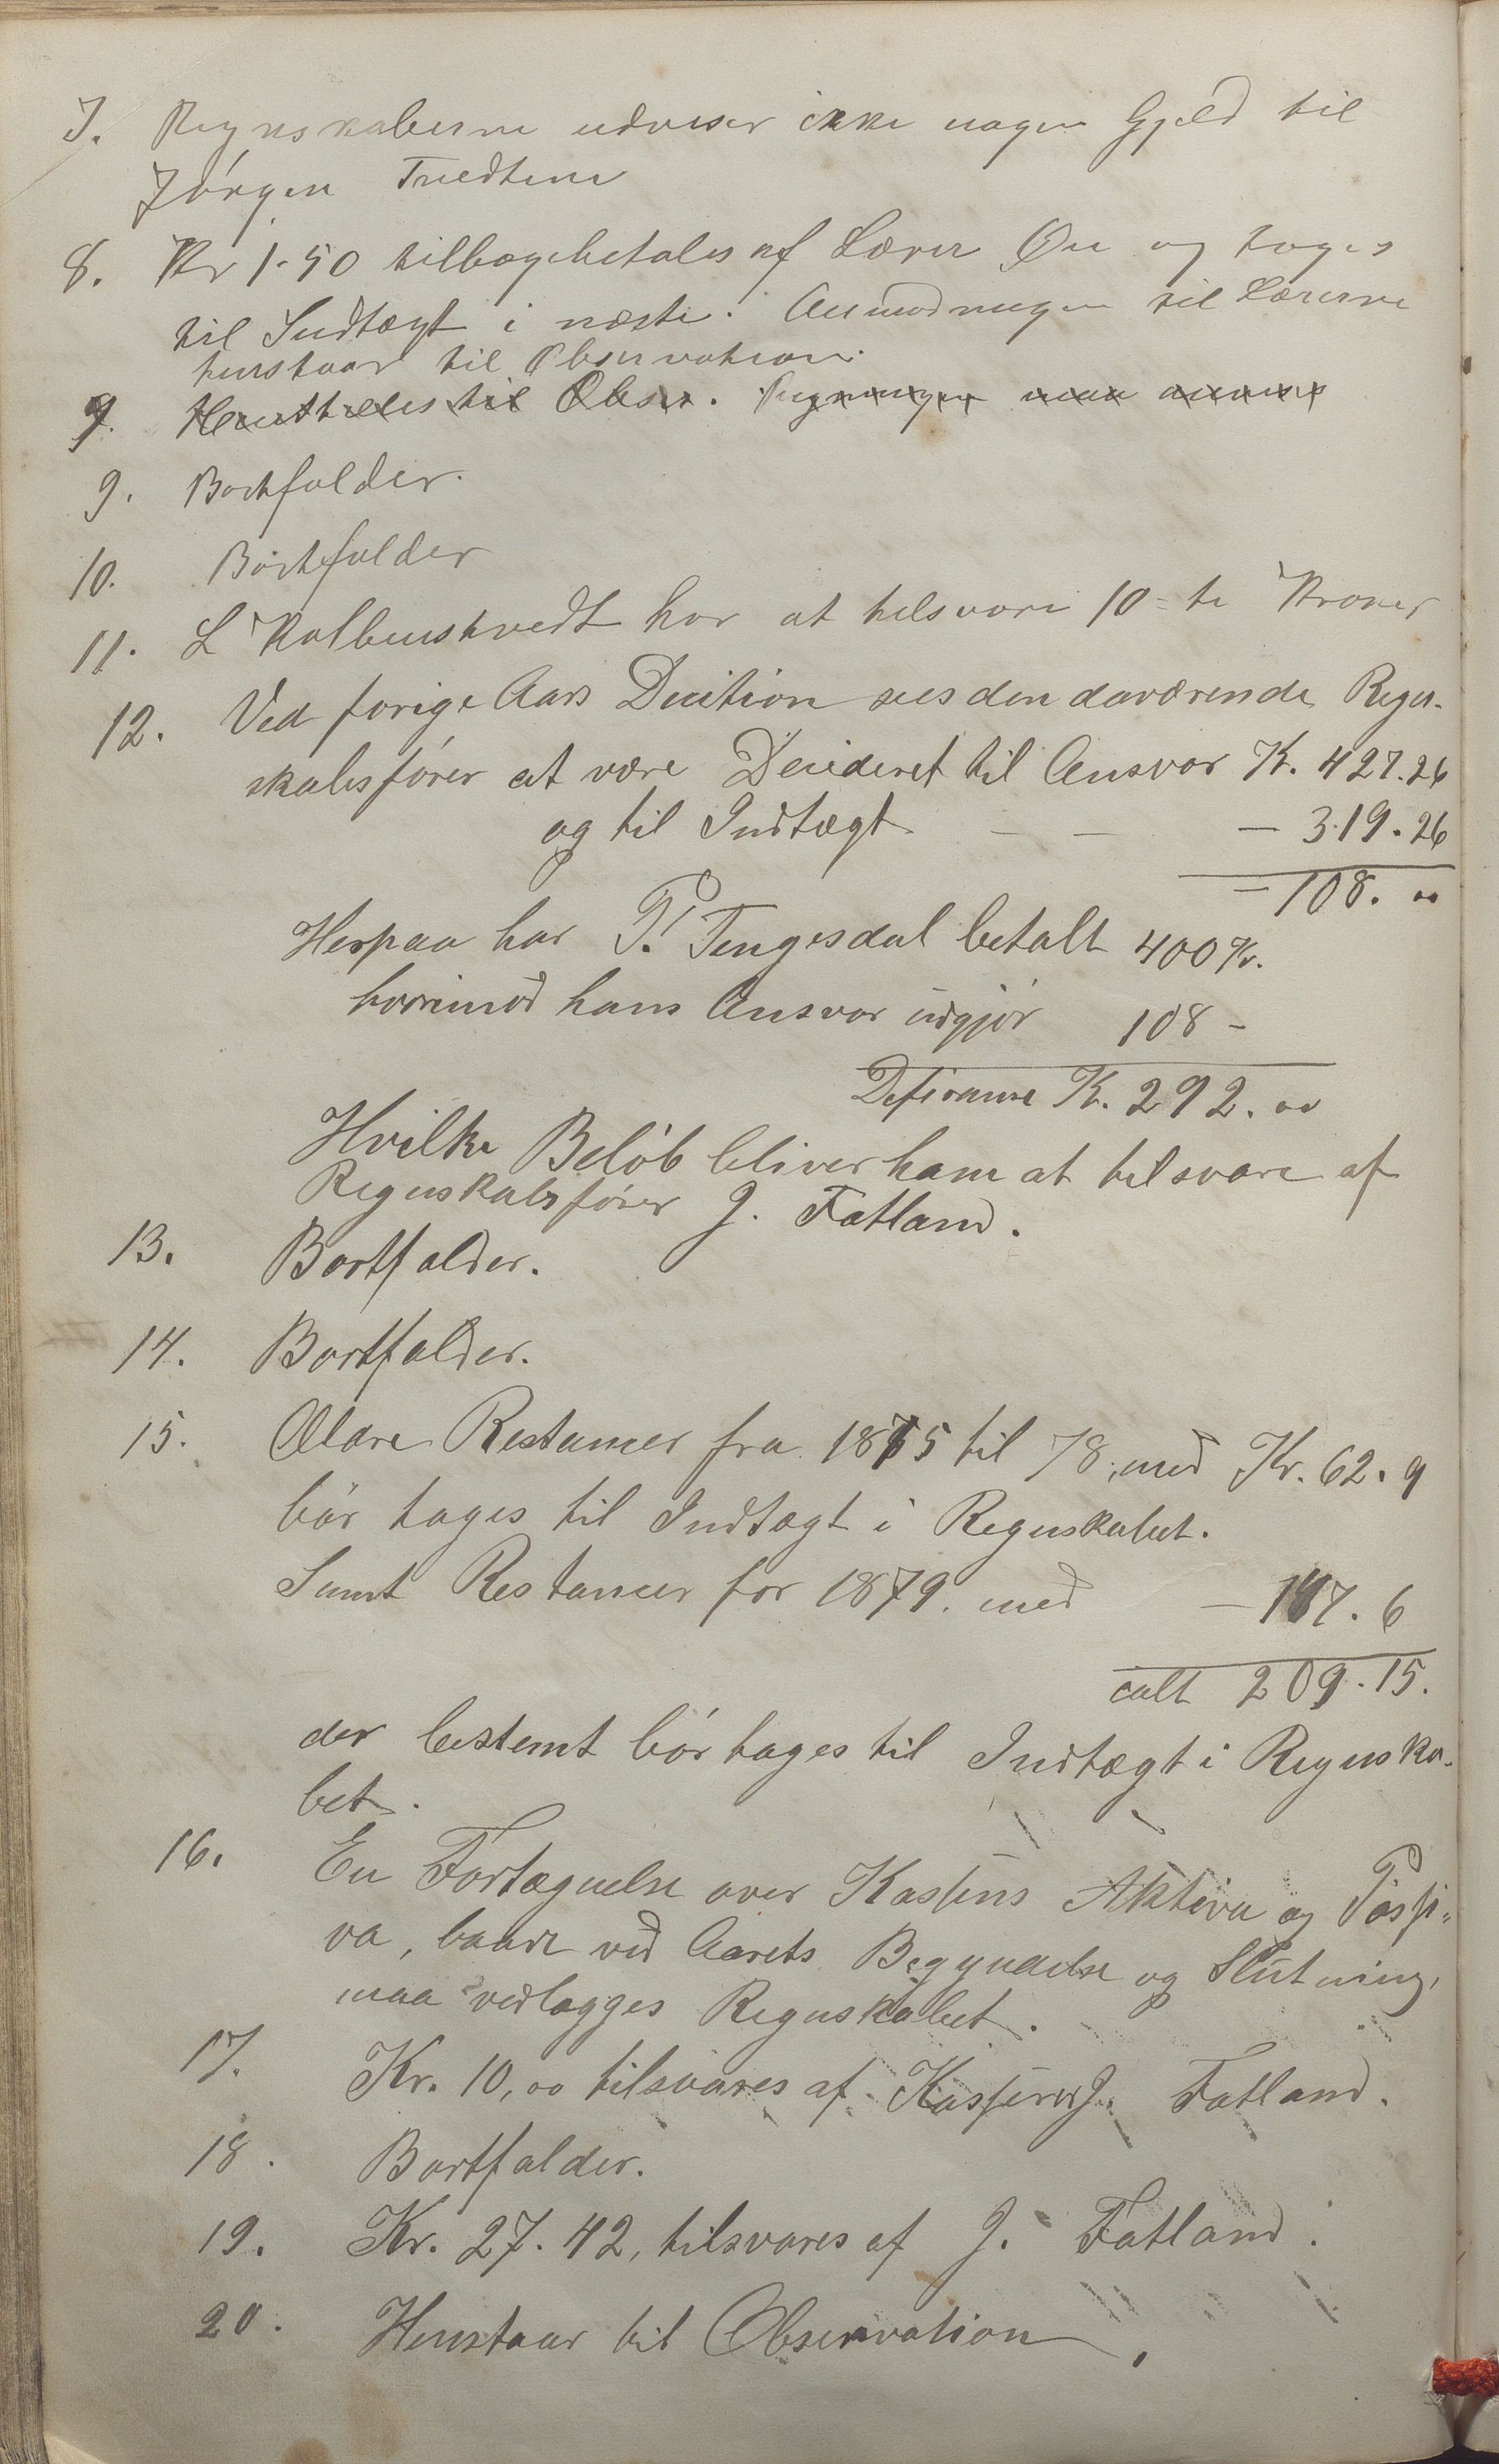 7. Regnskaberne udviser ikke nogen Gjeld til
Jørgen Tvedtene
8. Kr 1.50 tilbagebetales af Lærer Øie og tages
til Indtægt i næste. Anmodningen til Lærerne
henstaar til Observation.
9. Henstilles til Obser. Regningen maa
9. Bortfalder.
10. Bortfalder
11. L Kolbenstvedt har at tilsvare 10 - ti Kroner
12. Ved forige Aars Decition sees den daværende Regn-
skabsfører at være Decideret til Ansvar K. 427.26
og til Indtægt — — — 319.26
— 108. 00
Herpaa har P. Tengesdal betalt 400 Kr.
hvorimod hans Ansvar udgjør 108 -
Deferance K. 292. 00
Hvilke Beløb bliver ham at tilsvare af
Regnskabsfører J. Fatland.
13. Bortfalder.
14. Bortfalder.
15. Ældre Restancer fra 1875 til 78, med Kr. 62. 9
bør tages til Indtægt i Regnskabet.
Samt Restancer for 1879. med — 147. 6
ialt 209.15.
der bestemt bør tages til Indtægt i Regnska-
bet.
16. En Fortegnelse over Kassens Aktiva og Passi-
va, baade ved Aarets Begyndelse og Slutning,
maa vedlægges Regnskabet.
17. Kr. 10,00 tilsvares af Kasserer J. Fatland.
18. Bortfalder.
19. Kr. 27.42, tilsvares af J. Fatland.
20. Henstaar til Observation.